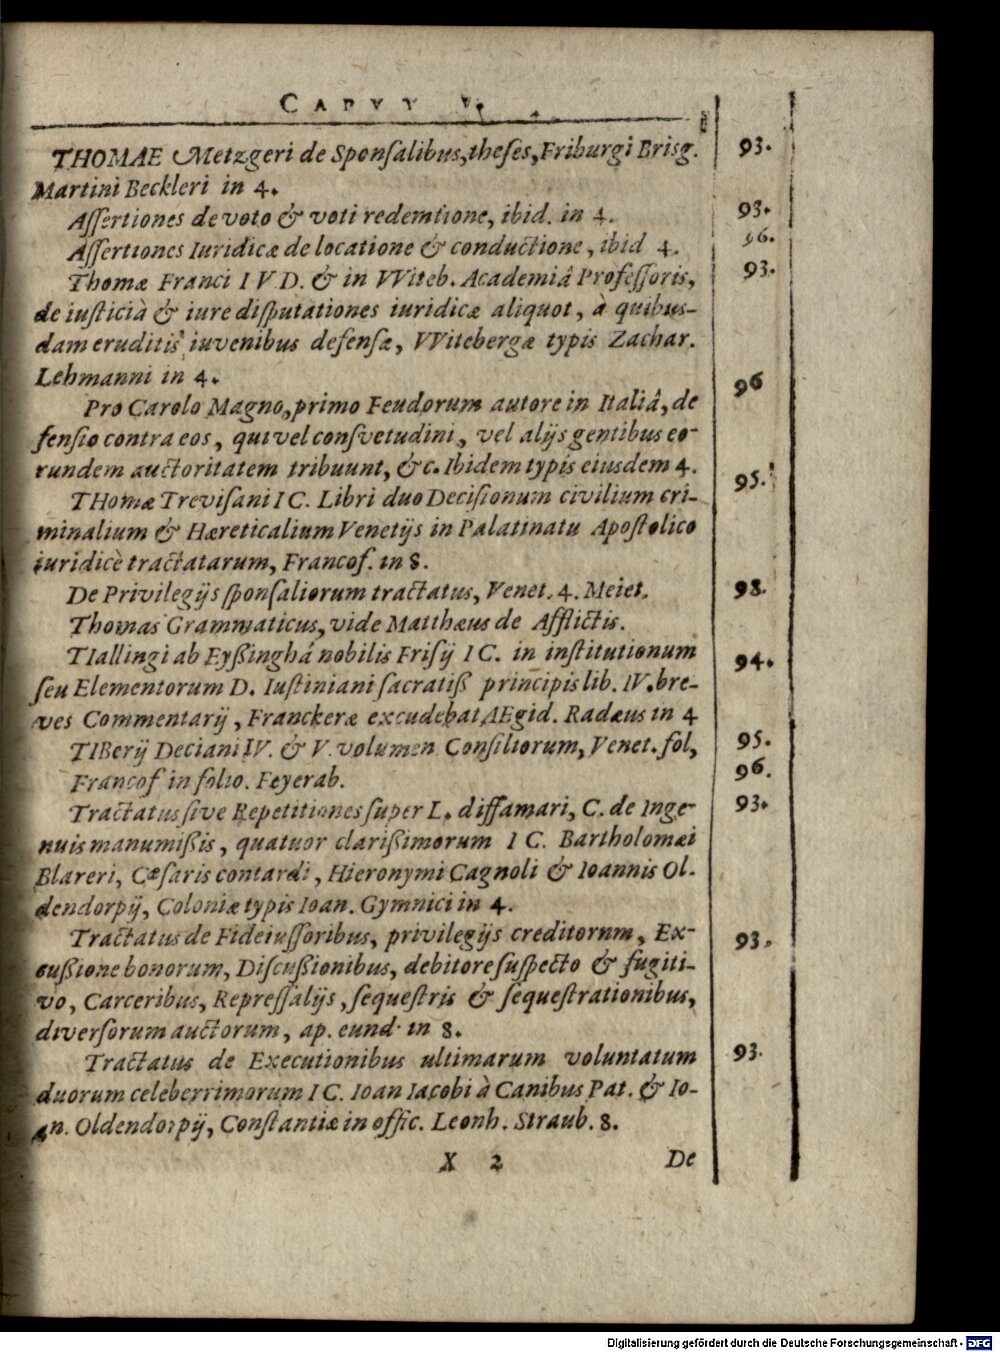 CAPVT V.
THOMAE Metzgeri de Sponſalibus, theſes, Friburgi Brisg. 93.
Martini Beckleri in 4.
Aſſertiones de voto & voti redemtione, ibid. in 4. 93.
Aſſertiones Iuridicæ de locatione & conductione, ibid 4. 96.
Thomæ Franci I V D. & in VViteb. Academiâ Profeſſoris, 93.
de iuſticià & iure diſputationes iuridicæ aliquot, à quibus-
dam eruditis iuvenibus defenſæ, VVitebergæ typis Zachar.
Lehmanni in 4.
Pro Carolo Magno, primo Feudorum autore in Italiâ, de 96
fenſio contra eos, qui vel conſvetudini, vel alijs gentibus eo-
rundem auctoritatem tribuunt, &c. Ibidem typis eiusdem 4.
THomæ Treviſani I C. Libri duo Deciſionum civilium cri- 95.
minalium & Hæreticalium Venetijs in Palatinatu Apoſtolico
iuridicè tractatarum, Francof. in 8.
De Privilegijs ſponſaliorum tractatus, Venet. 4. Meiet. 98.
Thomas Grammaticus, vide Matthæus de Afflictis.
TIallingi ab Eyßinghâ nobilis Friſij I C. in inſtitutionum 94.
ſeu Elementorum D. Iuſtiniani ſacratiß principis lib. IV. bre-
ves Commentarij, Franckeræ excudebat AEgid. Radæus in 4
TIBerij Deciani IV. & V. volumen Conſiliorum, Venet. fol, 95.
Francof in folio. Feyerab. 96.
Tractatus ſive Repetitiones ſuper L. diffamari, C. de Inge- 93.
nuis manumißis, quatuor clarißimorum I C. Bartholomæi
Blareri, Cæſaris contardi, Hieronymi Cagnoli & Ioannis Ol-
dendorpij, Coloniæ typis Ioan. Gymnici in 4.
Tractatus de Fideiuſſoribus, privilegijs creditorum, Ex- 93.
cußione bonorum, Diſcußionibus, debitore ſuſpecto & fugiti-
vo, Carceribus, Repreſſalijs, ſequeſtris & ſequeſtrationibus,
diverſorum auctorum, ap. eund. in 8.
Tractatus de Executionibus ultimarum voluntatum 93.
duorum celeberrimorum I C. Ioan Iacobi à Canibus Pat. & Io-
an. Oldendorpij, Conſtantiæ in offic. Leonh. Straub. 8.
X 2 De
Digitalisierung gefördert durch die Deutsche Forschungsgemeinschaft - DFG